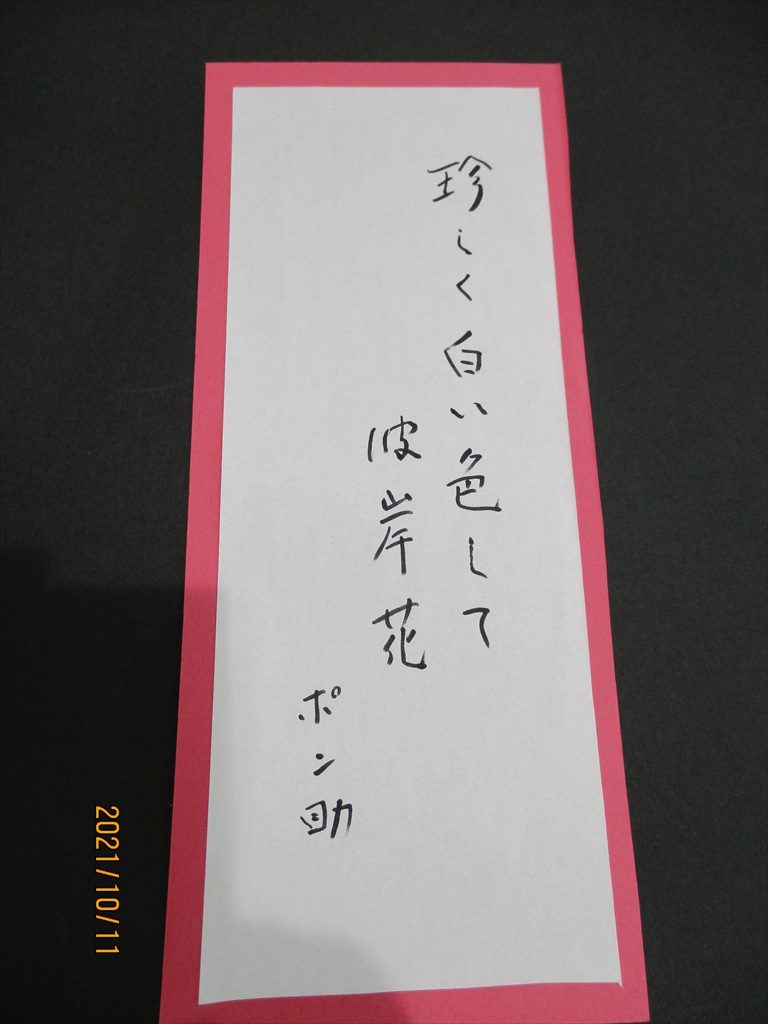 珍しく白い色して
彼岸花
ポン助
2021/10/11